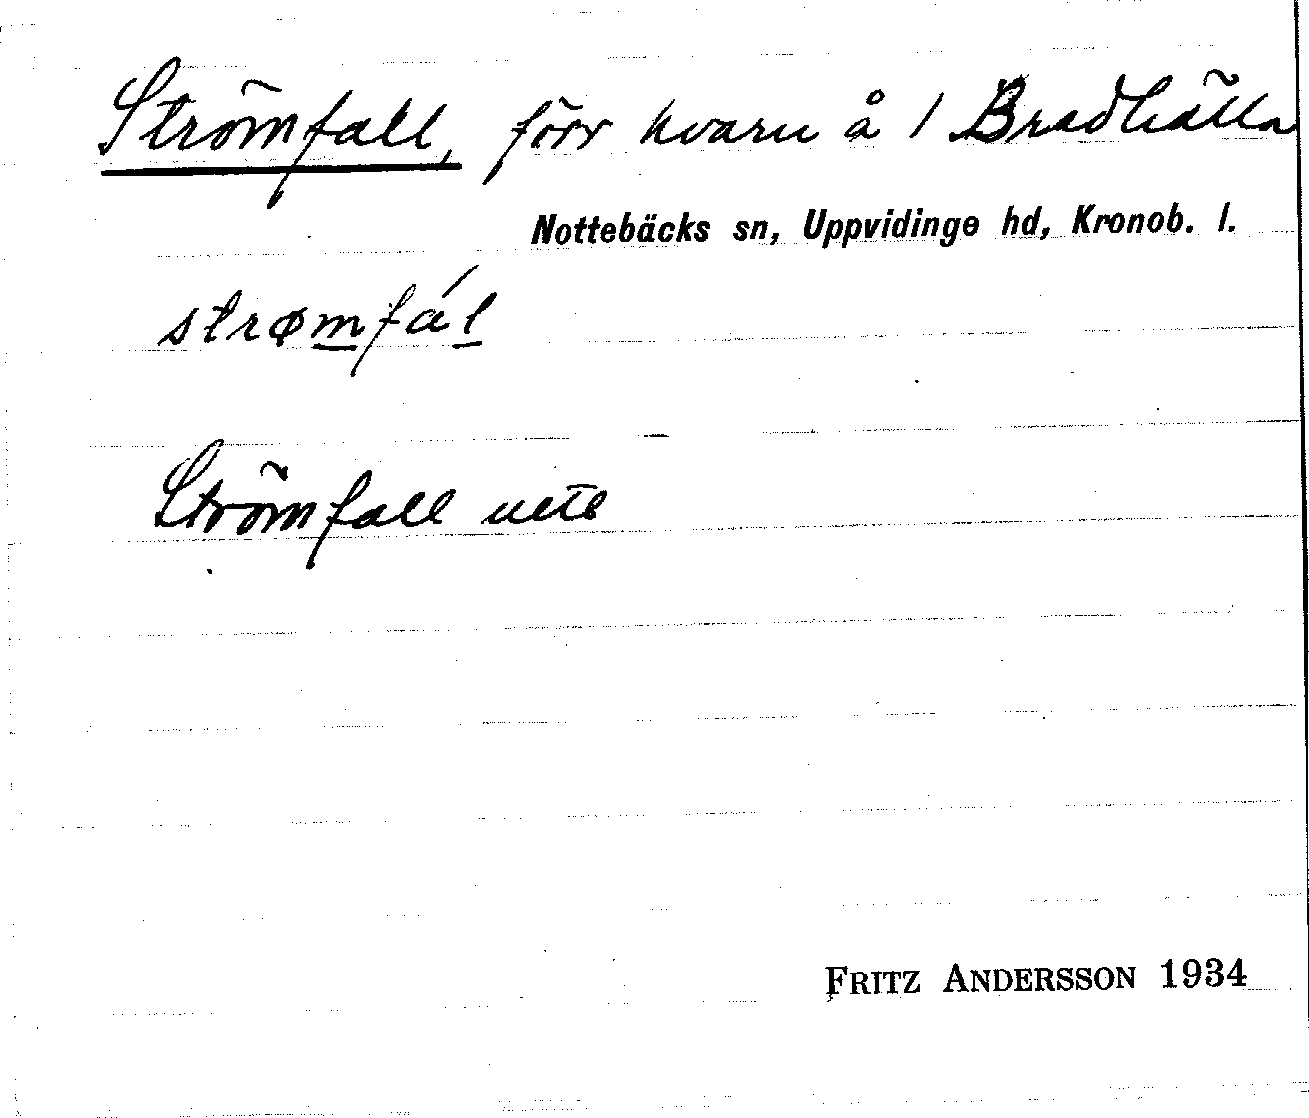 Strömfall, förr kvarn å 1 Bradhälla
Nottebäcks sn, Uppvidinge hd, Kronob. l.
strømfál
Strömfall
FRITZ ANDERSSON 1934